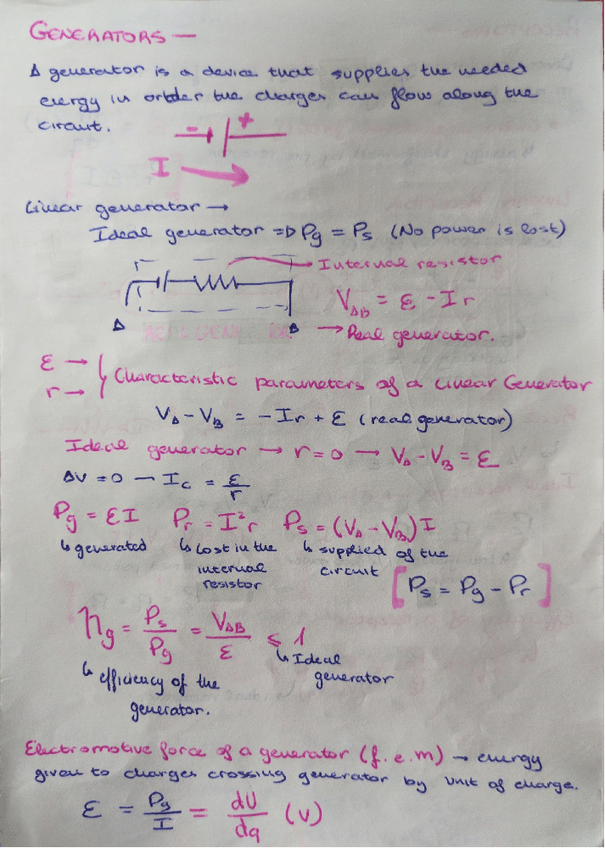 GENERATORS —
A generator is a device that supplies the needed
energy in order the charges can flow along the
circuit.
- +
I
Linear generator →
Ideal generator => Pg = Ps (No power is lost)
Internal resistor
V_AB = ε - Ir
A B → Real generator.
ε →
r → } Characteristic parameters of a Linear Generator
V_A - V_B = -Ir + ε (real generator)
Ideal generator → r = 0 → V_A - V_B = ε
ΔV = 0 — I_c = ε/r
Pg = εI Pr = I²r Ps = (V_A - V_B)I
↳ generated ↳ Lost in the internal resistor ↳ supplied of the circuit
[Ps = Pg - Pr]
ηg = Ps/Pg = V_AB/ε ≤ 1
↳ Ideal generator
↳ efficiency of the
generator.
Electromotive force of a generator (f.e.m) → energy
given to charges crossing generator by unit of charge.
ε = Pg/I = dU/dq (V)